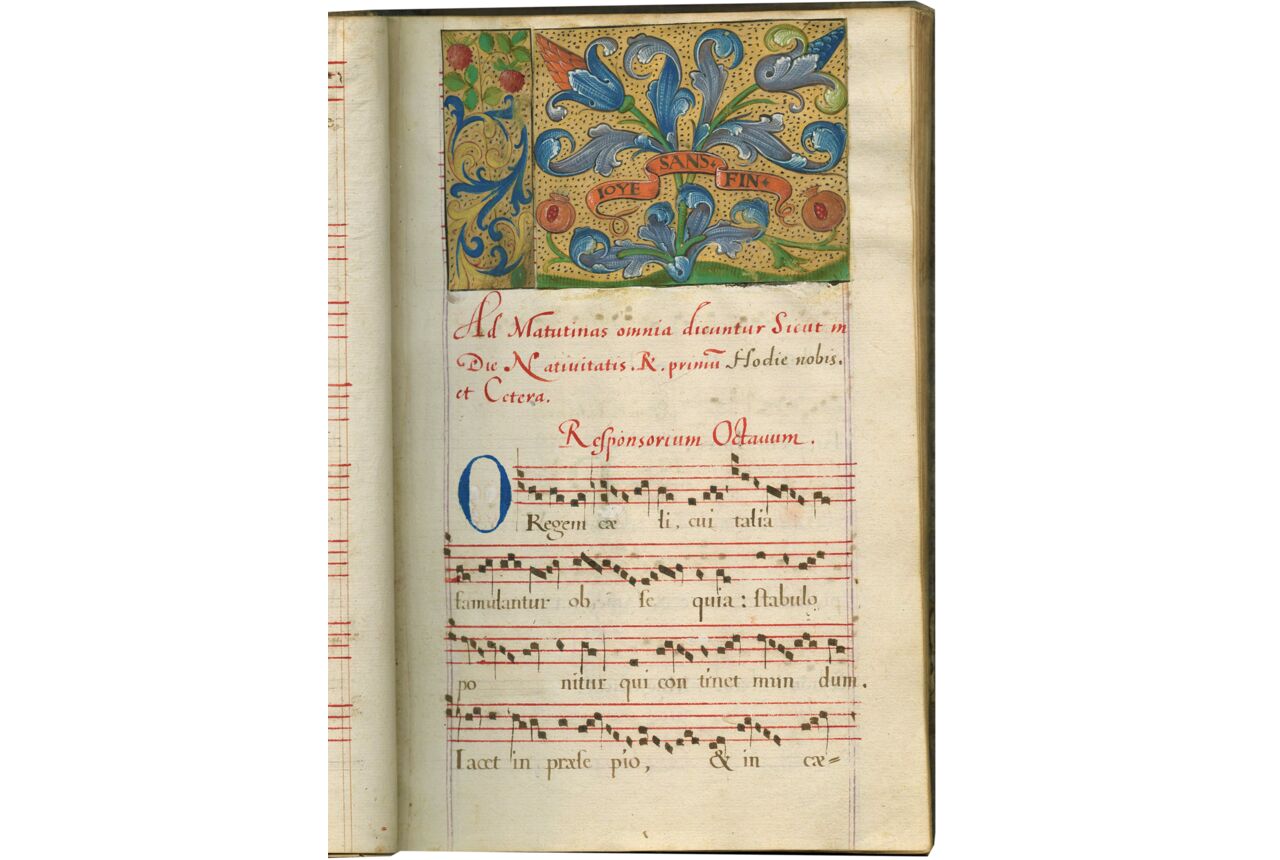 IOYE SANS FIN
Ad Matutinas omnia dicuntur Sicut in
Die Natiuitatis. ℟. primũ Hodie nobis.
et Cetera.
Responsorium Octauum.
O Regem cæ li, cui talia
famulantur ob se quia: stabulo
po nitur qui con tinet mun dum.
Iacet in præse pio, & in cæ=